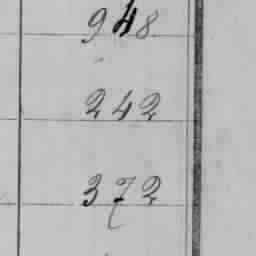 948
242
372